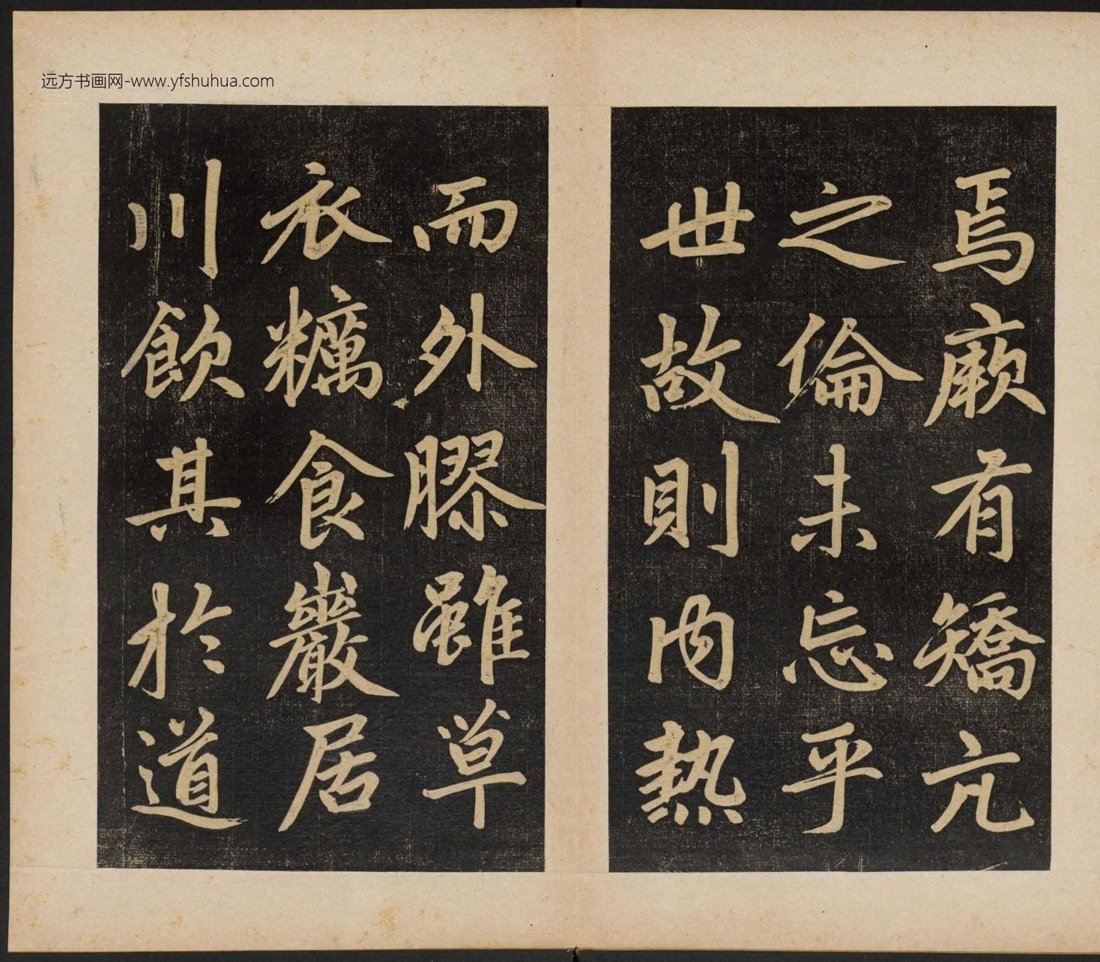 远方书画网-www.yfshuhua.com
焉厥有矯亢
之倫未忘乎
世故則内熱
而外膠雖草
衣糲食巖居
川飲其於道